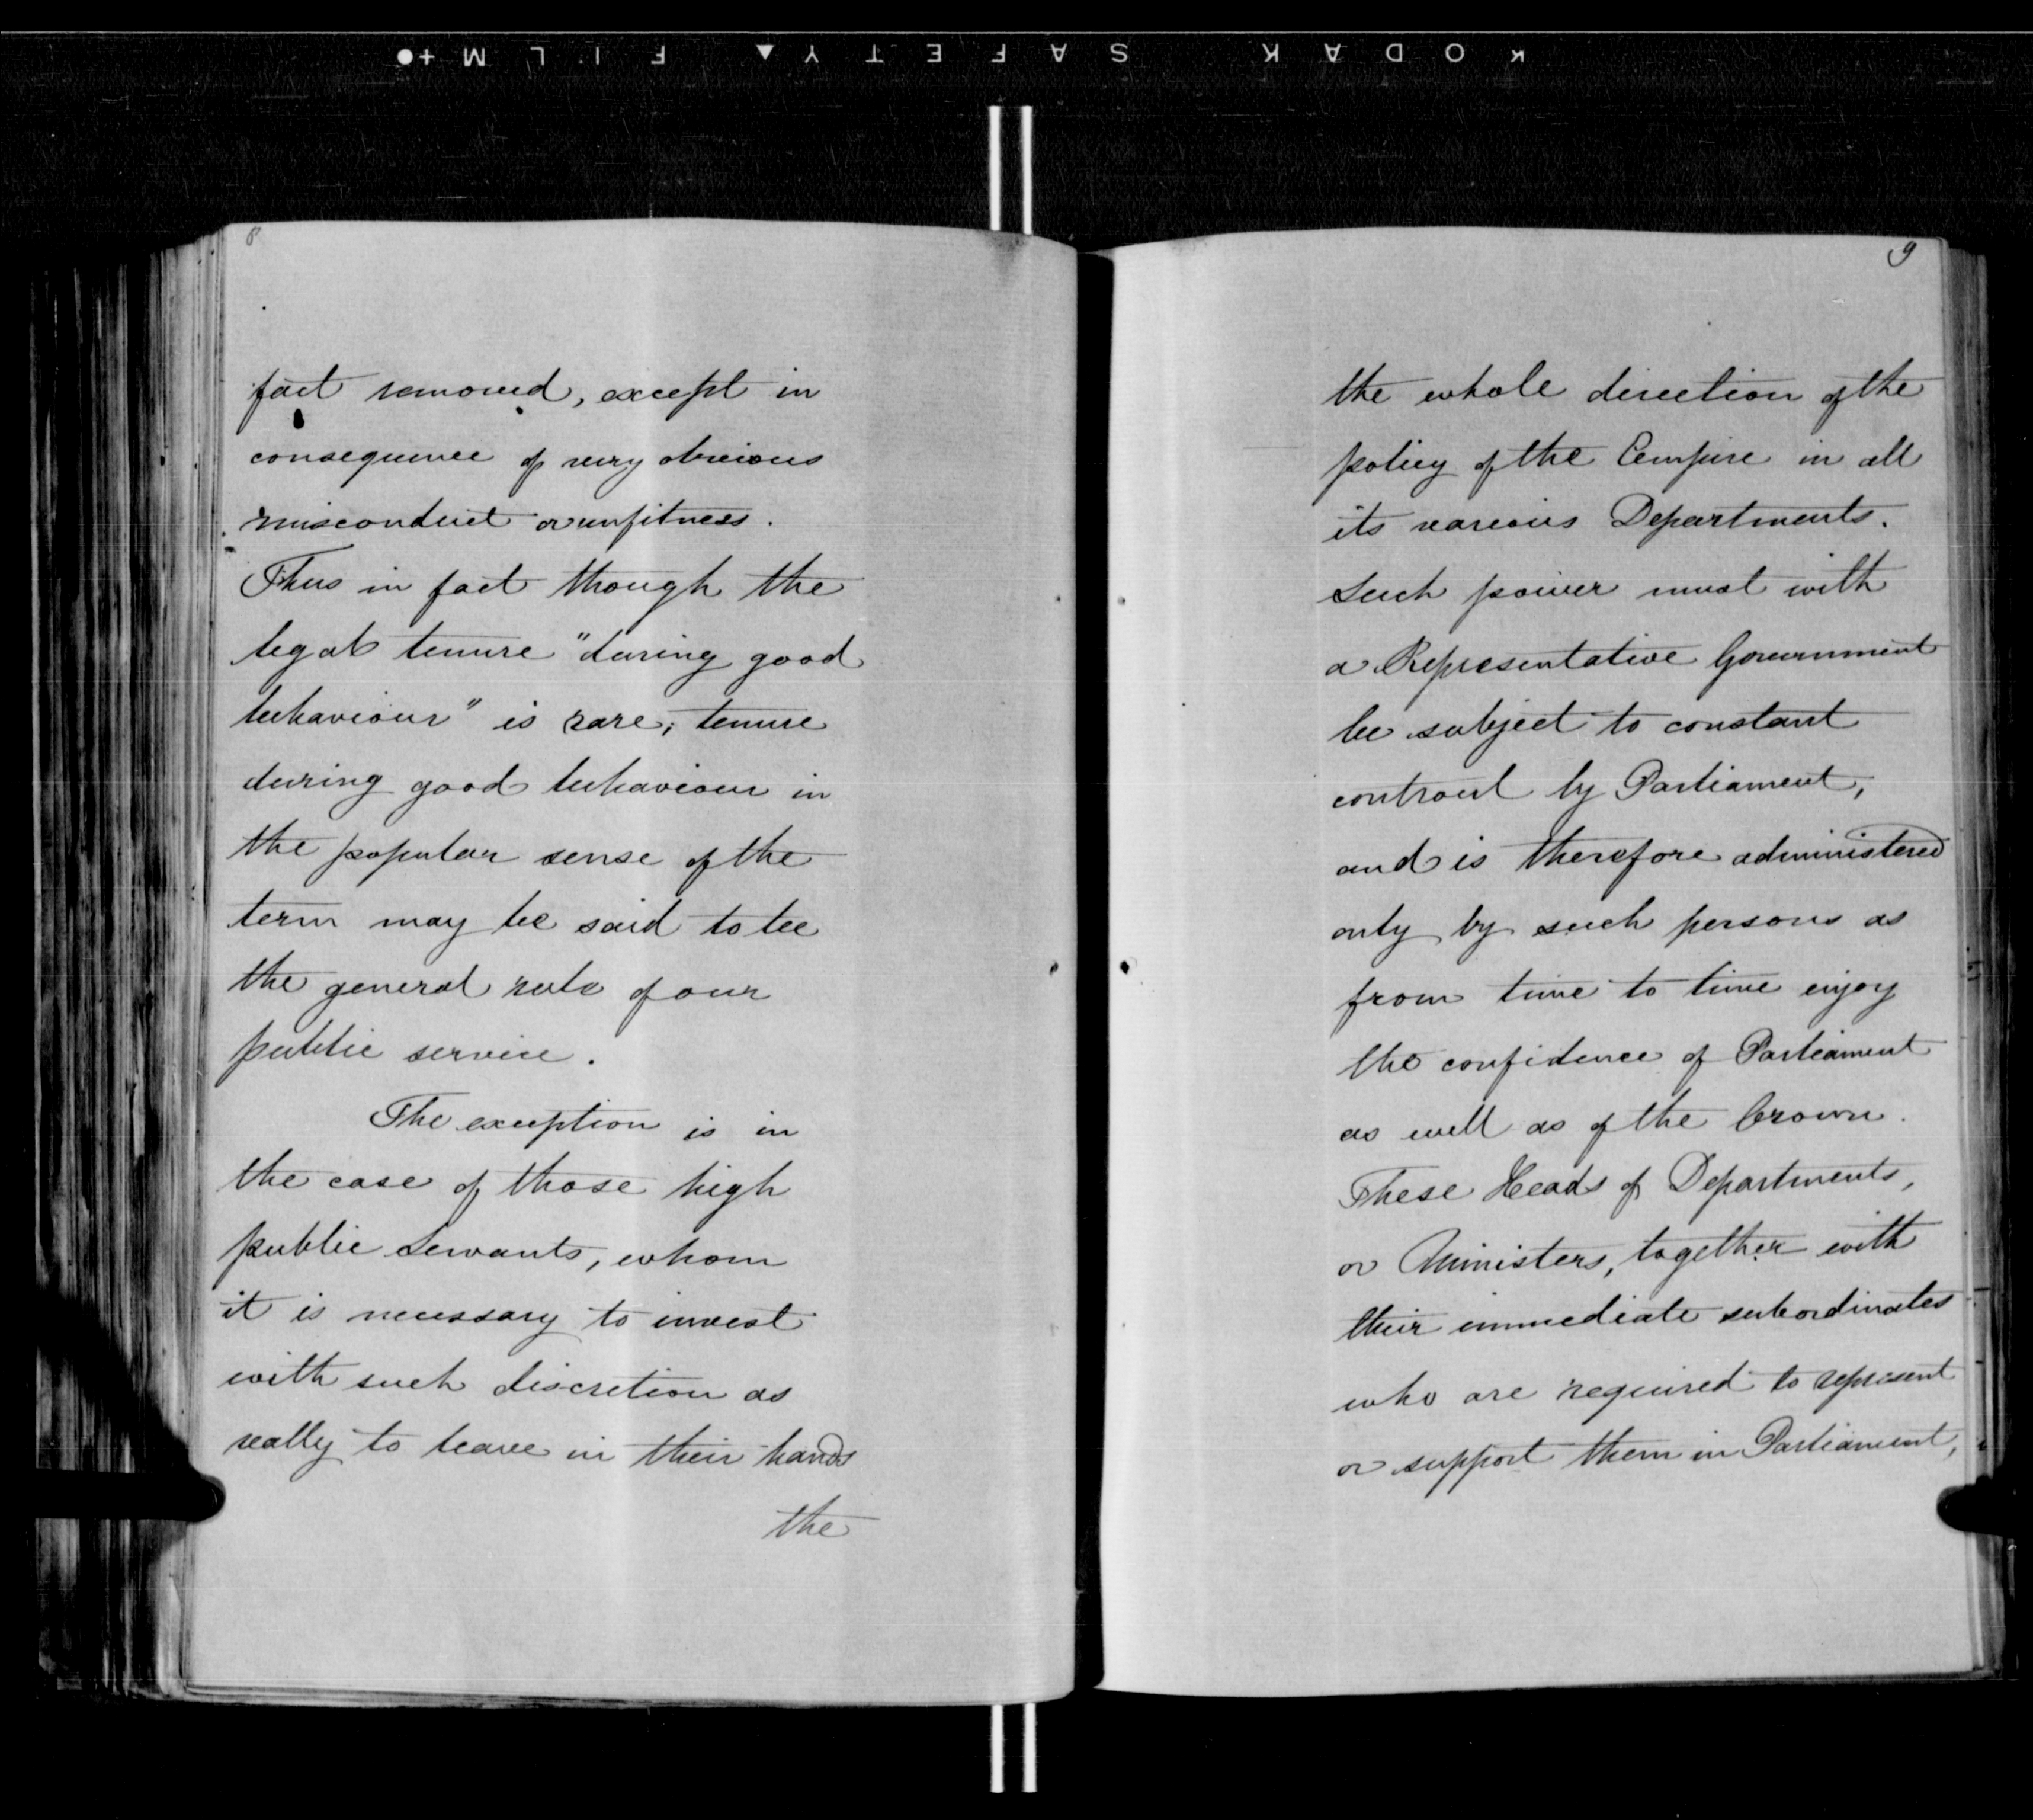 KODAK SAFETY FILM
8
fact removed, except in
consequence of very obvious
misconduct or unfitness.
Thus in fact though the
legal tenure "during good
behaviour" is rare, tenure
during good behaviour in
the popular sense of the
term may be said to be
the general rule of our
public service.
The exception is in
the case of those high
public servants, whom
it is necessary to invest
with such discretion as
really to leave in their hands
the
9
the whole direction of the
policy of the Empire in all
its various Departments.
Such power must with
a Representative Government
be subject to constant
controul by Parliament,
and is therefore administered
only by such persons as
from time to time enjoy
the confidence of Parliament
as well as of the Crown.
These Heads of Departments,
or Ministers, together with
their immediate subordinates
who are required to represent
or support them in Parliament,